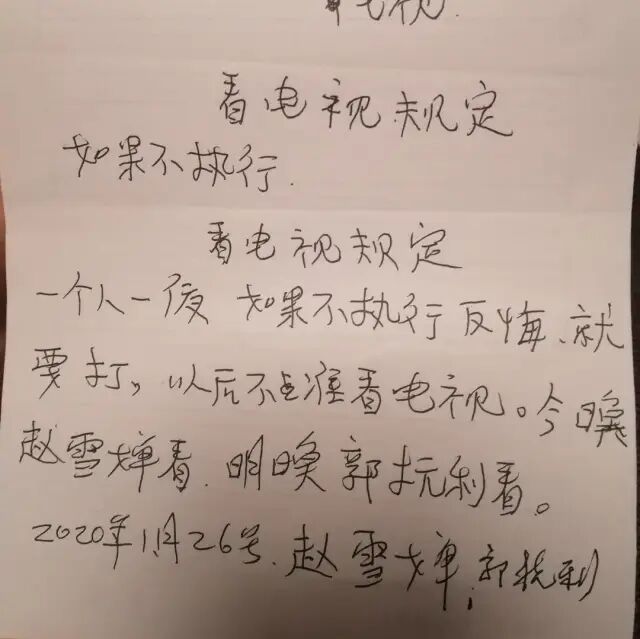 电视.
看电视规定
如果不执行.
看电视规定
一个人一夜 如果不执行反悔、就
要打，以后不准看电视。今晚
赵雪婵看.明晚郭抗利看。
2020年1月26号.赵雪婵,郭抗利